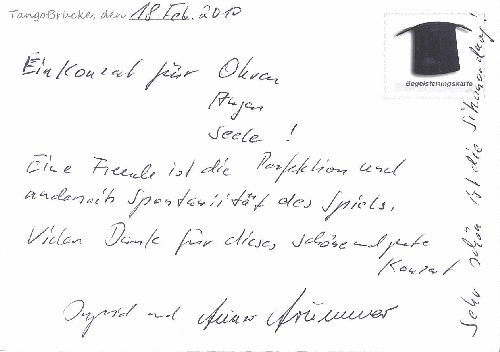 TangoBrücke, den 18 Feb. 2010
Begeisterungskarte
Ein Konzert für Ohren
Augen
Seele !
Eine Freude ist die Perfektion und
anderseits Spontanität des Spiels.
Vielen Dank für dieses schöne und gute
Konzert
Ingrid und
Sehr schön ist die !